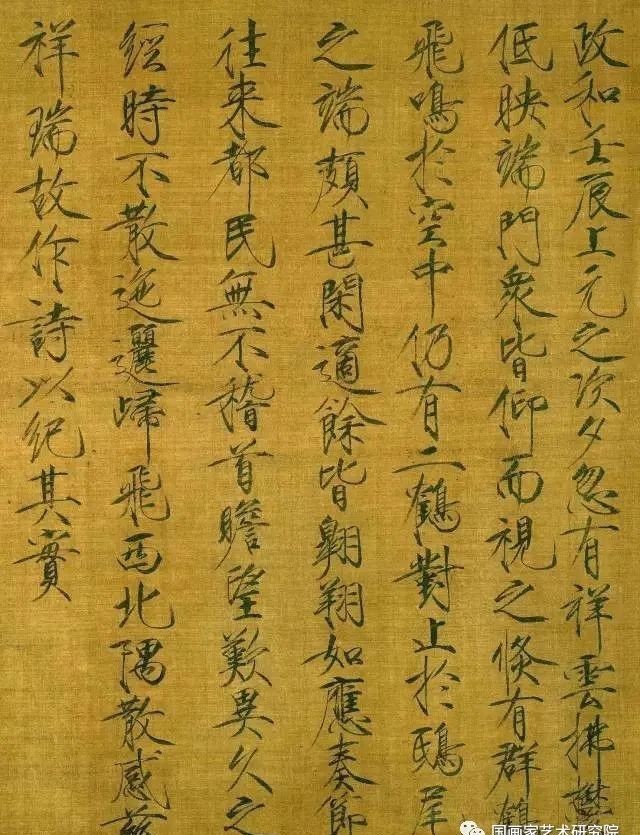 政和壬辰上元之次夕忽有祥雲拂鬱
低映端門衆皆仰而視之倏有群鶴
飛鳴於空中仍有二鶴對止於鴟尾
之端頗甚閑適餘皆翱翔如應奏節
往来都民無不稽首瞻望歎異久之
經時不散迤邐歸飛西北隅散感茲
祥瑞故作詩以紀其實
国画家艺术研究院